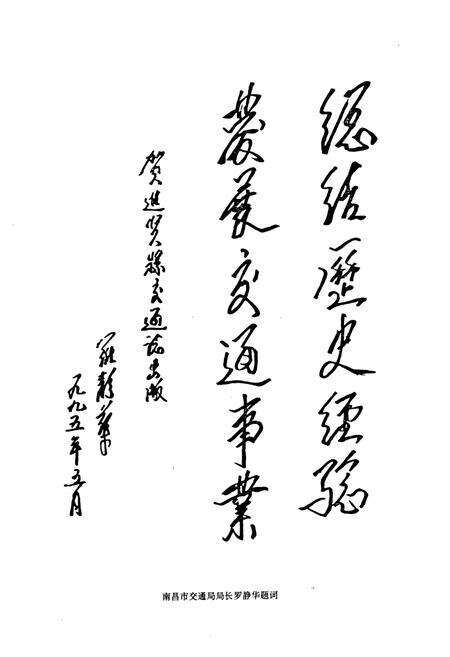 總結歷史经验
發展交通事業
贺進贤縣交通誌出版
羅静華
一九九五年五月
南昌市交通局局长罗静华题词